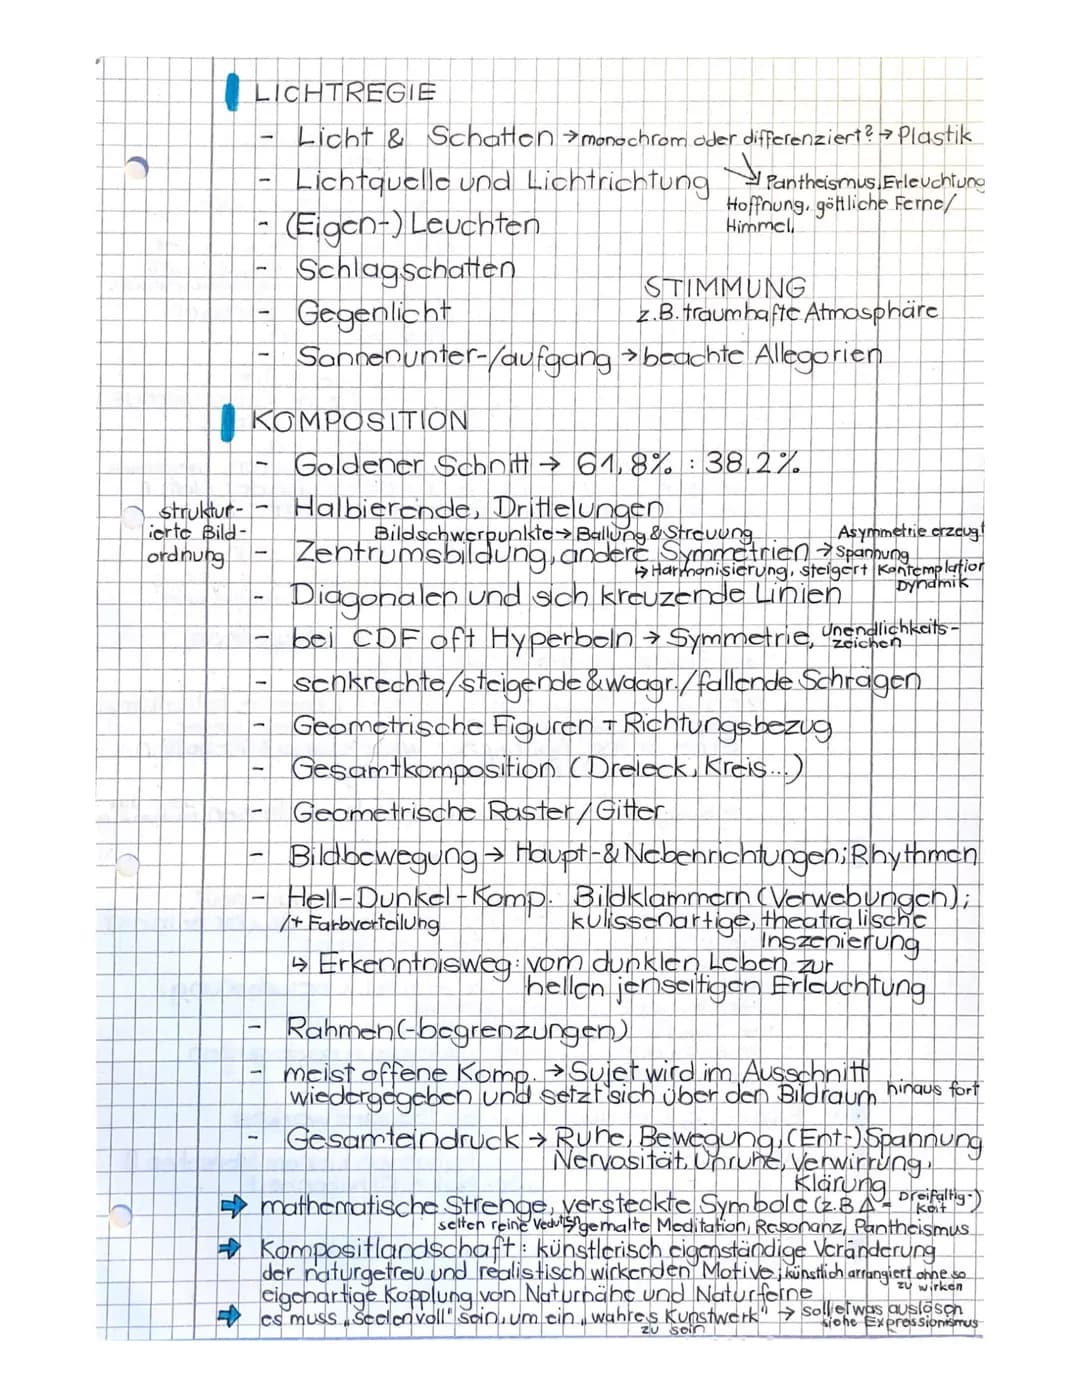 LICHTREGIE
- Licht & Schatten → monochrom oder differenziert? → Plastik
- Lichtquelle und Lichtrichtung
Pantheismus, Erleuchtung
Hoffnung, göttliche Ferne/
Himmel,
- (Eigen-) Leuchten
- Schlagschatten
STIMMUNG
z.B. traumhafte Atmosphäre
- Gegenlicht
- Sonnenunter-/aufgang → beachte Allegorien
KOMPOSITION
- Goldener Schnitt → 61,8% : 38,2%
strukturierte
Bild-
ordnung
- Halbierende, Drittelungen
Bildschwerpunkte → Ballung & Streuung
Asymmetrie erzeugt
- Zentrumsbildung, andere Symmetrien → Spannung
↳ Harmonisierung, steigert Kontemplation
Dynamik
- Diagonalen und sich kreuzende Linien
- bei CDF oft Hyperbeln → Symmetrie, Unendlichkeits-
zeichen
- senkrechte/steigende & waagr./fallende Schrägen
- Geometrische Figuren + Richtungsbezug
- Gesamtkomposition (Dreieck, Kreis...)
- Geometrische Raster/Gitter
- Bildbewegung → Haupt- & Nebenrichtungen; Rhythmen
- Hell-Dunkel-Komp. Bildklammern (Verwebungen);
/+ Farbverteilung kulissenartige, theatralische
Inszenierung
↳ Erkenntnisweg: vom dunklen Leben zur
hellen jenseitigen Erleuchtung
- Rahmen(-begrenzungen)
- meist offene Komp. → Sujet wird im Ausschnitt
wiedergegeben und setzt sich über den Bildraum hinaus fort
- Gesamteindruck → Ruhe, Bewegung, (Ent-)Spannung
Nervosität, Unruhe, Verwirrung,
Klärung
➔ mathematische Strenge, versteckte Symbole (z.B Δ = Dreifaltig-)
keit
selten reine gemalte Meditation, Resonanz, Pantheismus
➔ Kompositlandschaft: künstlerisch eigenständige Veränderung
der naturgetreu und realistisch wirkenden Motive; künstlich arrangiert ohne so
zu wirken
eigenartige Kopplung von Naturnähe und Naturferne
➔ es muss „seelenvoll" sein, um ein „wahres Kunstwerk" → soll etwas auslösen
zu sein
siehe Expressionismus